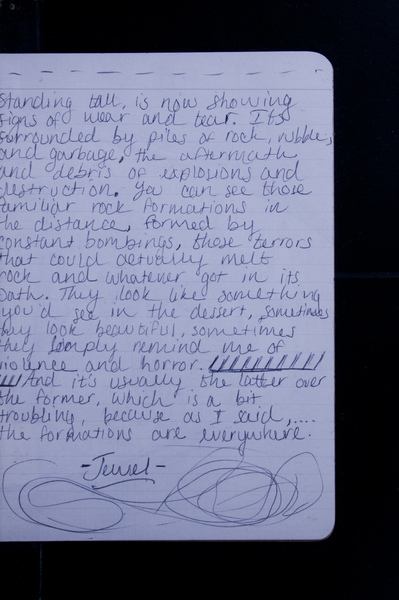 standing tall, is now showing
signs of wear and tear. Its
surrounded by piles of rock, rubble,
and garbage, the aftermath
and debris of explosions and
destruction. You can see those
familiar rock formations in
the distance, formed by
constant bombings, those terrors
that could actually melt
rock and whatever got in its
path. They look like something
you'd see in the dessert, sometimes
they look beautiful, sometimes
they simply remind me of
violence and horror.
And it's usually the latter over
the former, which is a bit
troubling, because as I said,....
the formations are everywhere.
-Jewel-